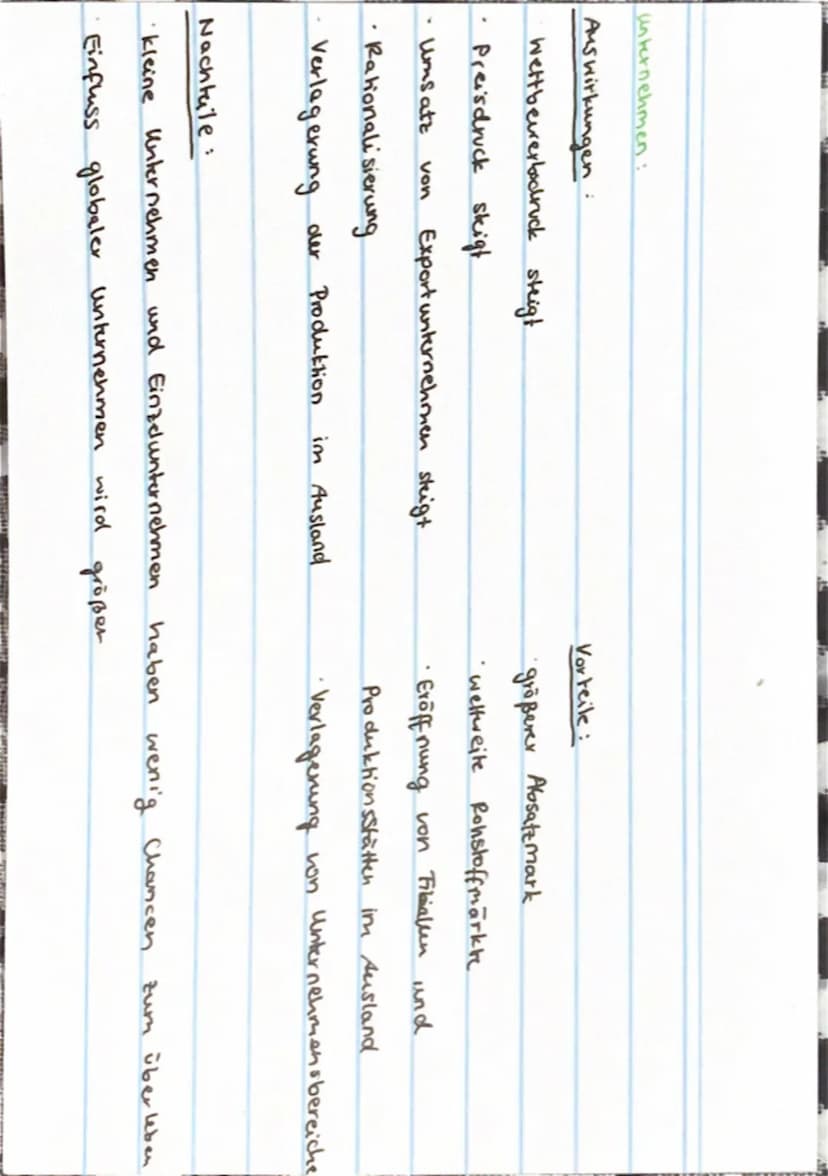 Unternehmen:
Auswirkungen:
· Wettbewerbsdruck steigt
· Preisdruck steigt
· Umsatz von Exportunternehmen steigt
· Rationalisierung
· Verlagerung der Produktion im Ausland
Vorteile:
· größerer Absatzmark
· weltweite Rohstoffmärkte
· Eröffnung von Filialen und
Produktionsstätten im Ausland
· Verlagerung von Unternehmensbereiche
Nachteile:
· kleine Unternehmen und Einzelunternehmen haben wenig Chancen zum überleben
· Einfluss globaler Unternehmen wird größer